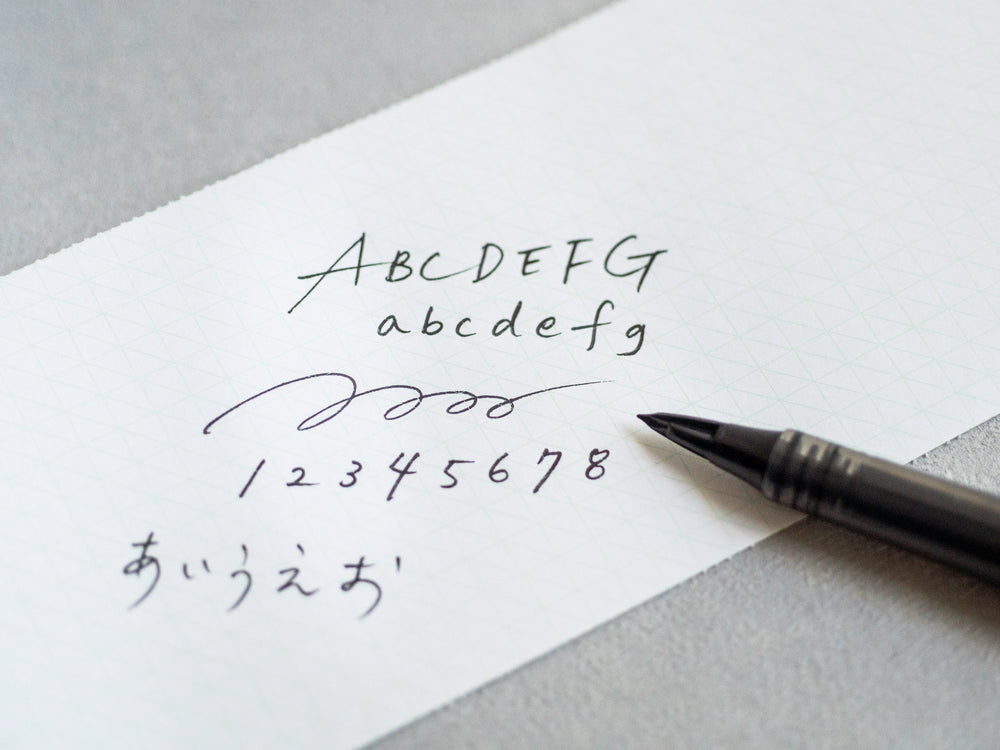 ABCDEFG
abcdefg
12345678
あいうえお